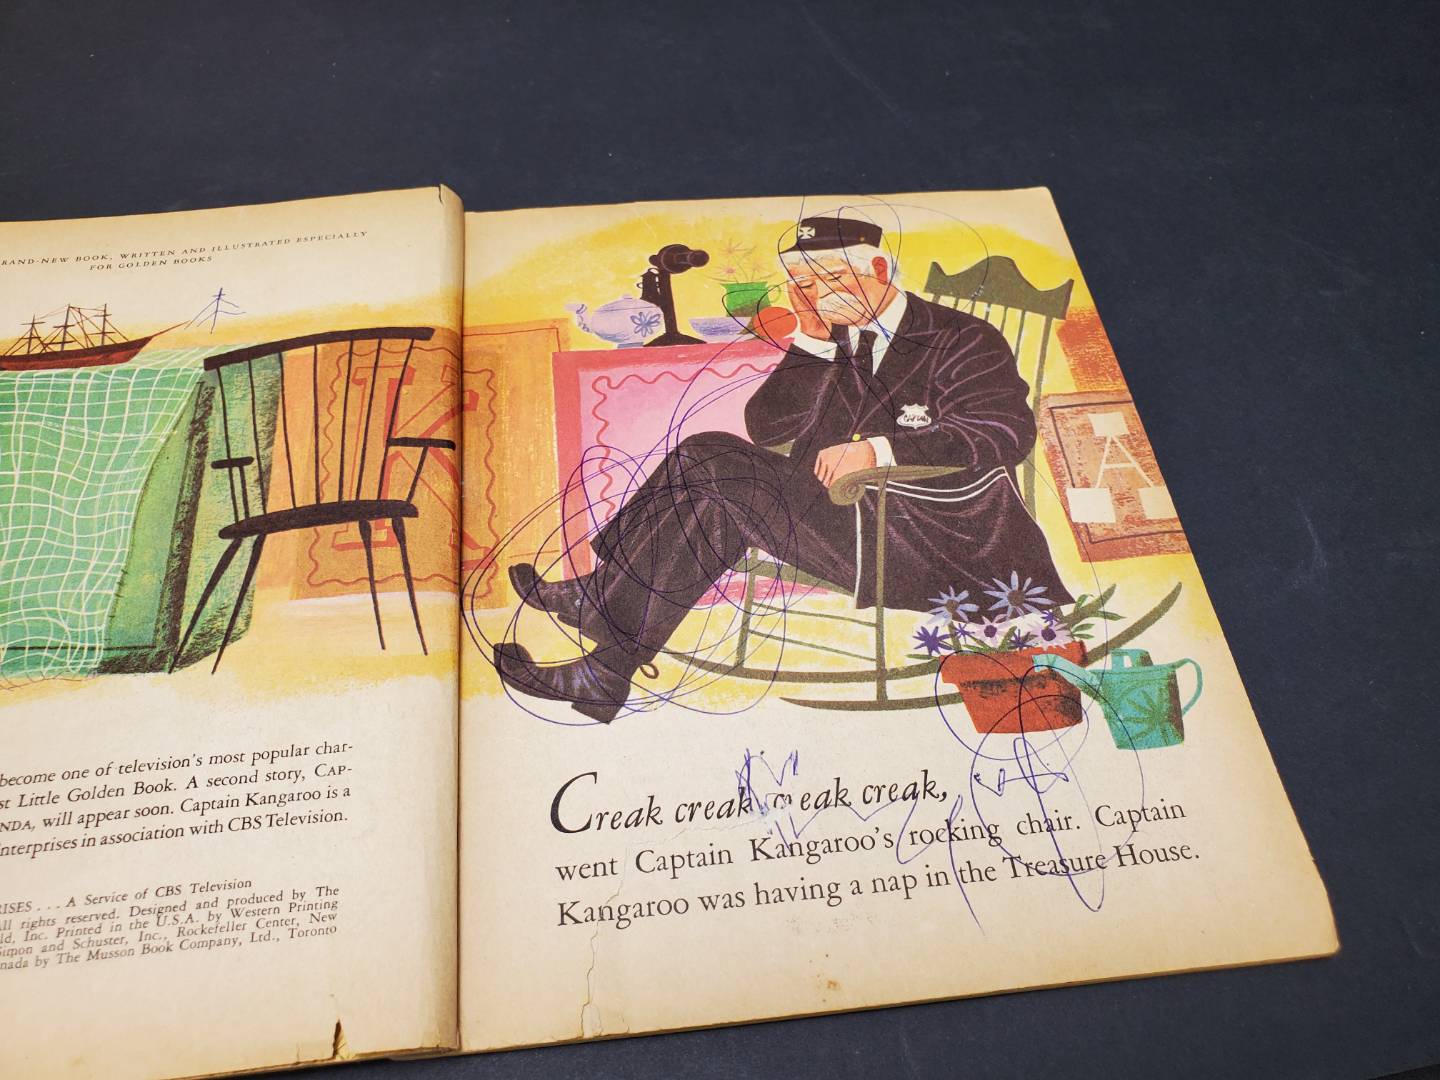 RAND-NEW BOOK, WRITTEN AND ILLUSTRATED ESPECIALLY
FOR GOLDEN BOOKS
K
become one of television's most popular char-
st Little Golden Book. A second story, CAP-
NDA, will appear soon. Captain Kangaroo is a
nterprises in association with CBS Television.
RISES . . . A Service of CBS Television
All rights reserved. Designed and produced by The
ld, Inc. Printed in the U.S.A. by Western Printing
Simon and Schuster, Inc., Rockefeller Center, New
nada by The Musson Book Company, Ltd., Toronto
CAPTAIN
A
Creak creak, creak creak,
went Captain Kangaroo's rocking chair. Captain
Kangaroo was having a nap in the Treasure House.